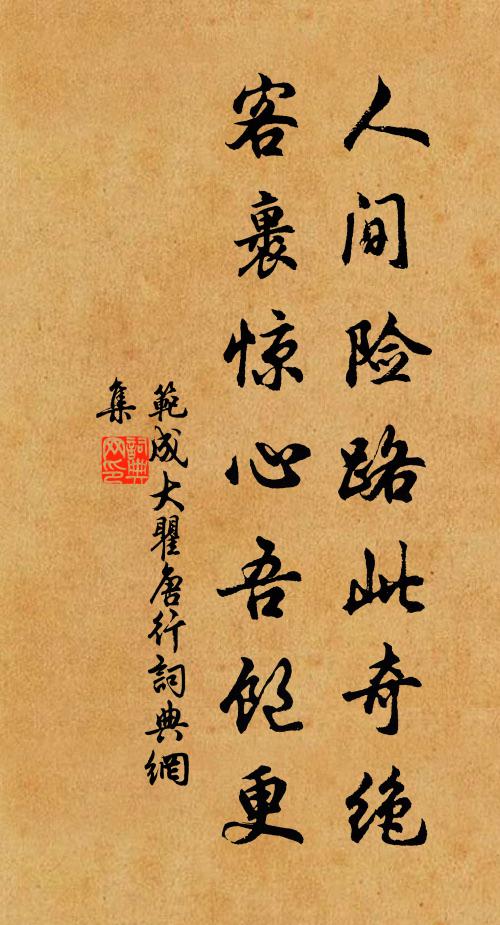 人间险路此奇绝
客裹惊心吾饱更
範成大瞿唐行詞典網
集
詞典
网印